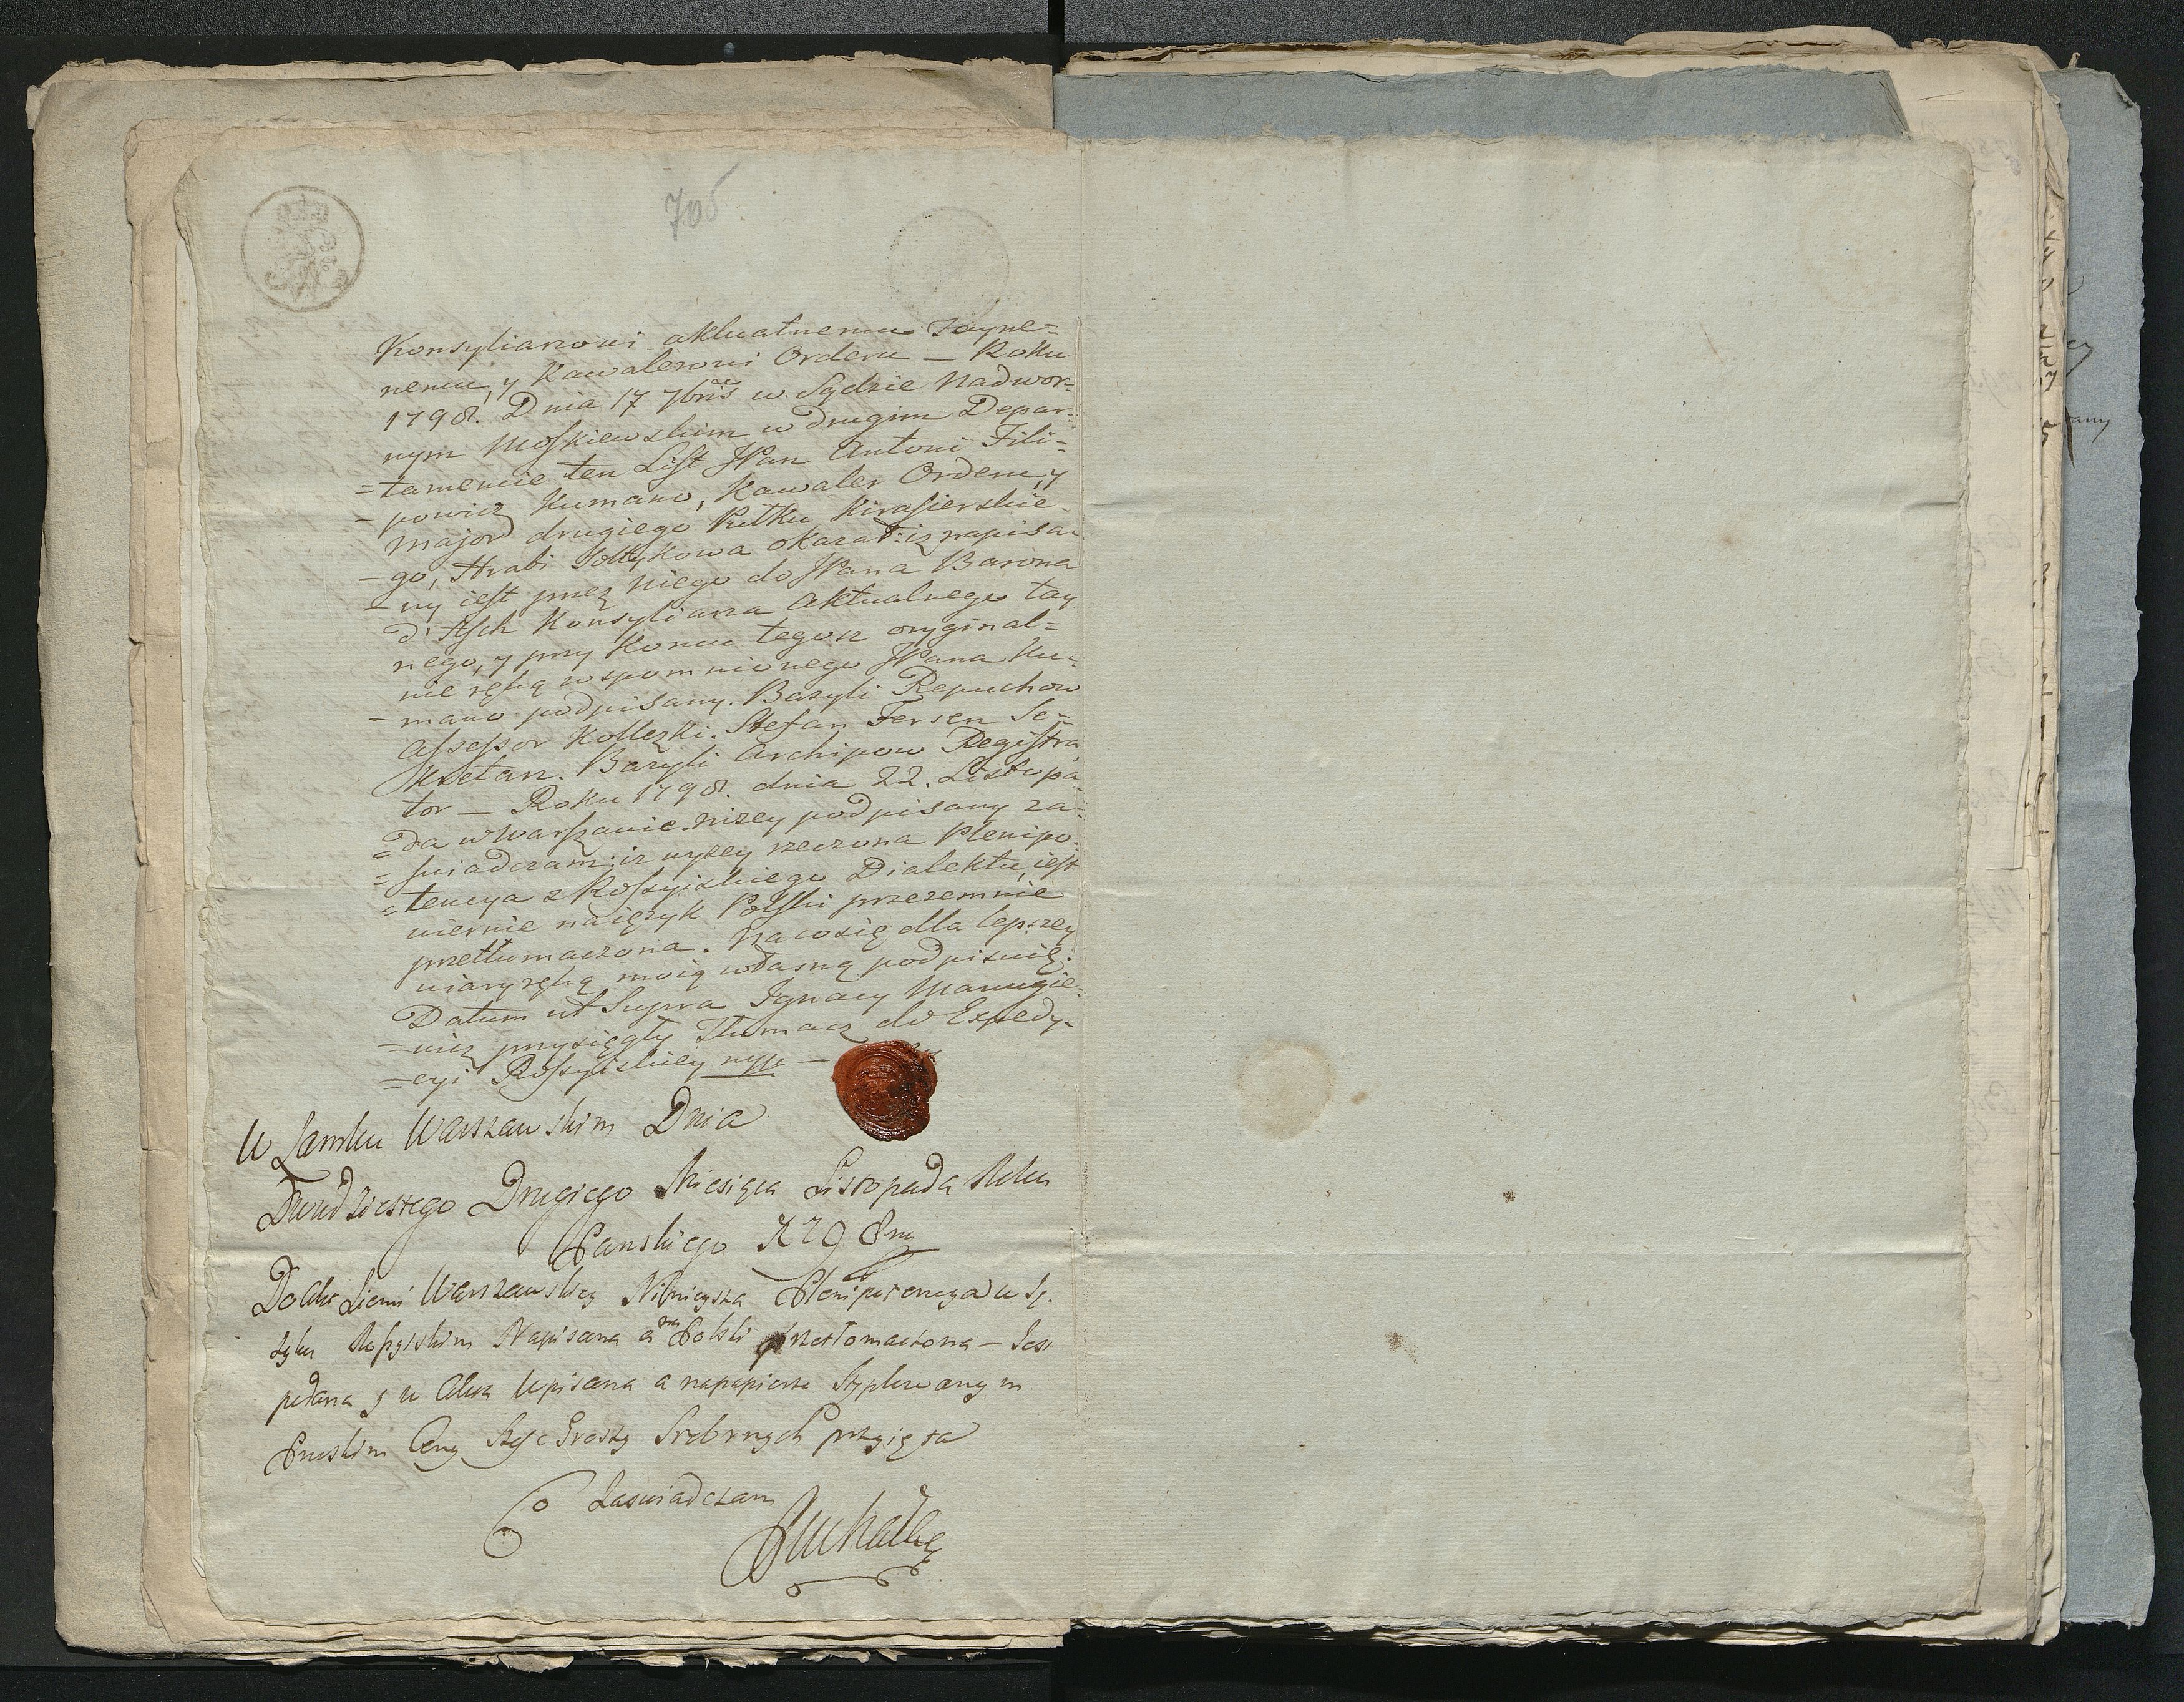 705
Konsyliarzowi aktualnemu Tayne=
nemu, y Kawalerowi Orderu — Roku
1798. Dnia 17 7bris w Sądzie Nadwor=
nym Moskiewskim w drugim Depar=
=tamencie ten List JPan Antoni Fili=
-powicz Kumano, Kawaler Orderu, y
Major drugiego Pułku Kirasierskie-
-go, Hrabi Sołtykowa okazał: iż napisa-
-ny iest przez niego do JPana Barona
d'Asch Konsyliarza Aktualnego tay
nego, y przy Koncu tegoż oryginal=
nie ręką wspomnionego JPana Ku=
-mano podpisany. Bazyli Repuchow
Assessor Kolleski. Stefan Fersen Se=
kretarz. Bazyli Archipow Registra
tor — Roku 1798. dnia 22. Listopa
=da w Warszawie. niżey podpisany za=
=swiadczam: iż wyżey rzeczona Plenipo=
=tencya z Rossyiskiego Dialektu, iest
wiernie na ięzyk Polski przezemnie
przetłumaczona. Na co się dla lepszey
wiary ręką moią własną podpisuię.
Datum ut Supra Ignacy Manugie=
=wicz przysięgły Tłumacz do Expedy-
=cyi Rossyiskiey mpp —
W Zamku Warszawskim Dnia
Dwudziestego Drugiego Miesiąca Listopada Roku
Panskiego 1798m
Do Akt Ziemi Warszawskiey Ninieysza Plenipotencya w Ję-
zyku Rossyiskim Napisana a na Polski przetłomaczona — Jest
podana y w Akta Wpisana a na papierze Stęplowanym
Pruskim Ceny Szesc Groszy Srebrnych przyięta
Zaswiadczam